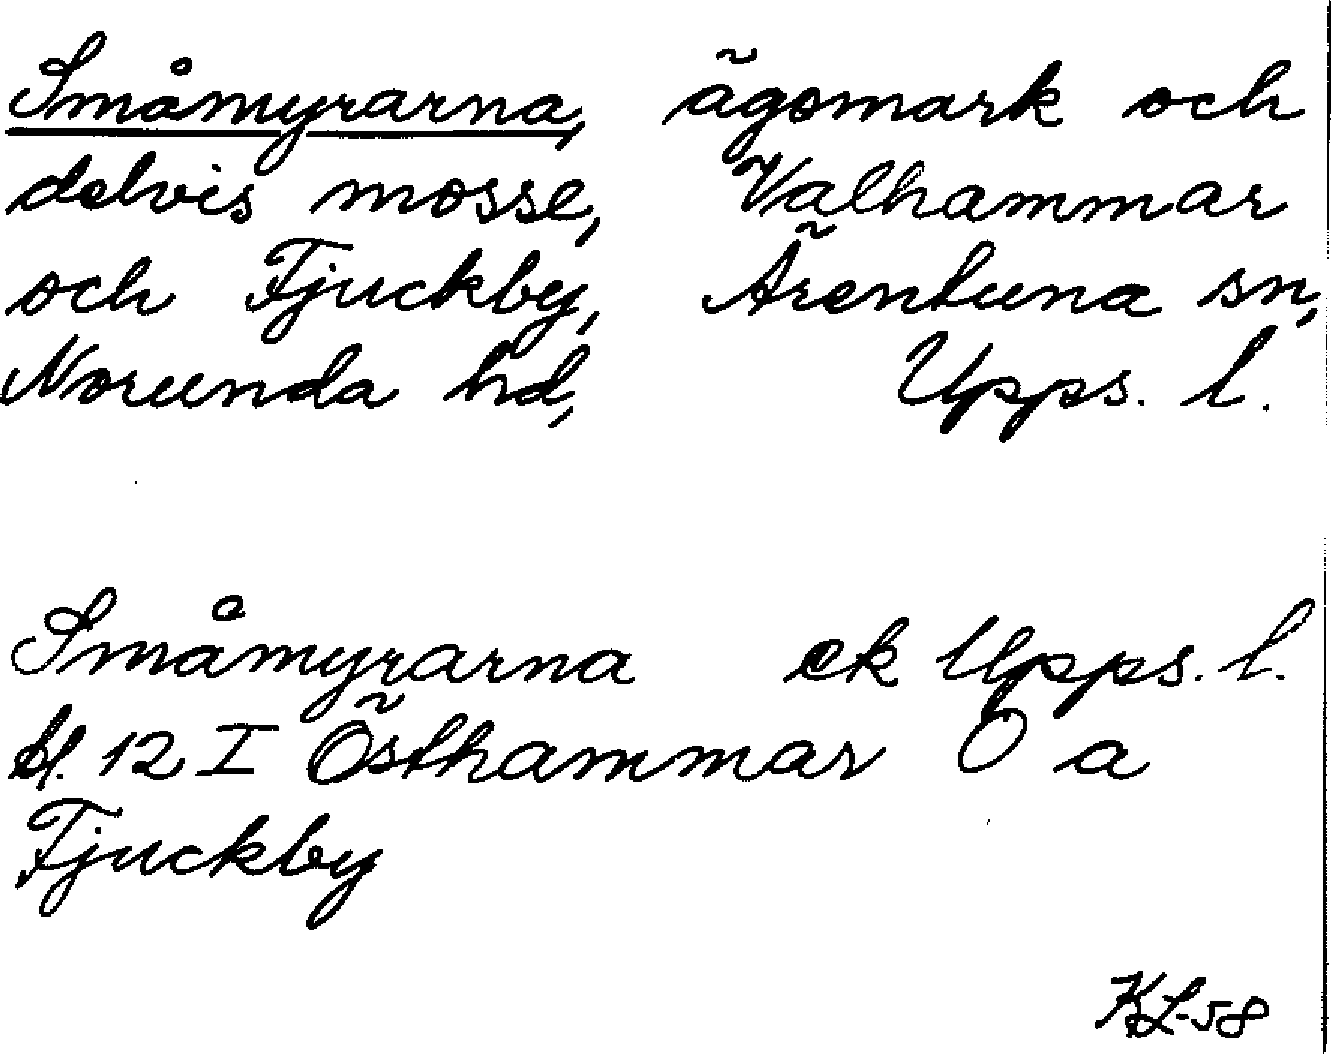 Småmyrarna, ägomark och
delvis mosse, Valhammar
och Fjuckby, Ärentuna sn,
Norunda hd, Upps. l.
Småmyrarna ek Upps. l.
bl. 12 I Östhammar O a
Fjuckby
KL-58